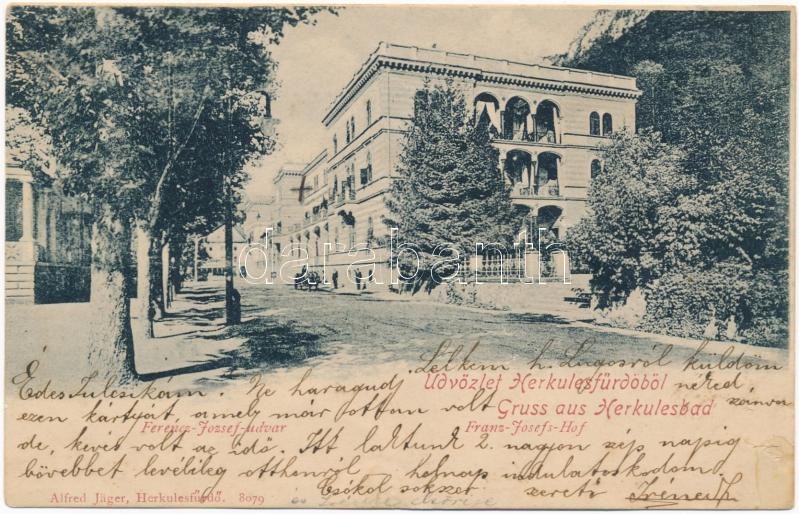 darabanth.com
Lelkem h. Lugosról küldöm
Édes Juliskám. Ne haragudj
Üdvözlet Herkulesfürdőből
neked
ezen kártyát, amely már ottan volt
Gruss aus Herkulesbad
szánva
Ferencz-József-udvar
Franz-Josefs-Hof
de, kevés volt az idő. Itt laktunk 2. nagyon szép napig
bővebbet levélileg otthonról holnap indulatoskodom.
Csókol sokszor szerető
Alfred Jäger, Herkulesfürdő. 8079